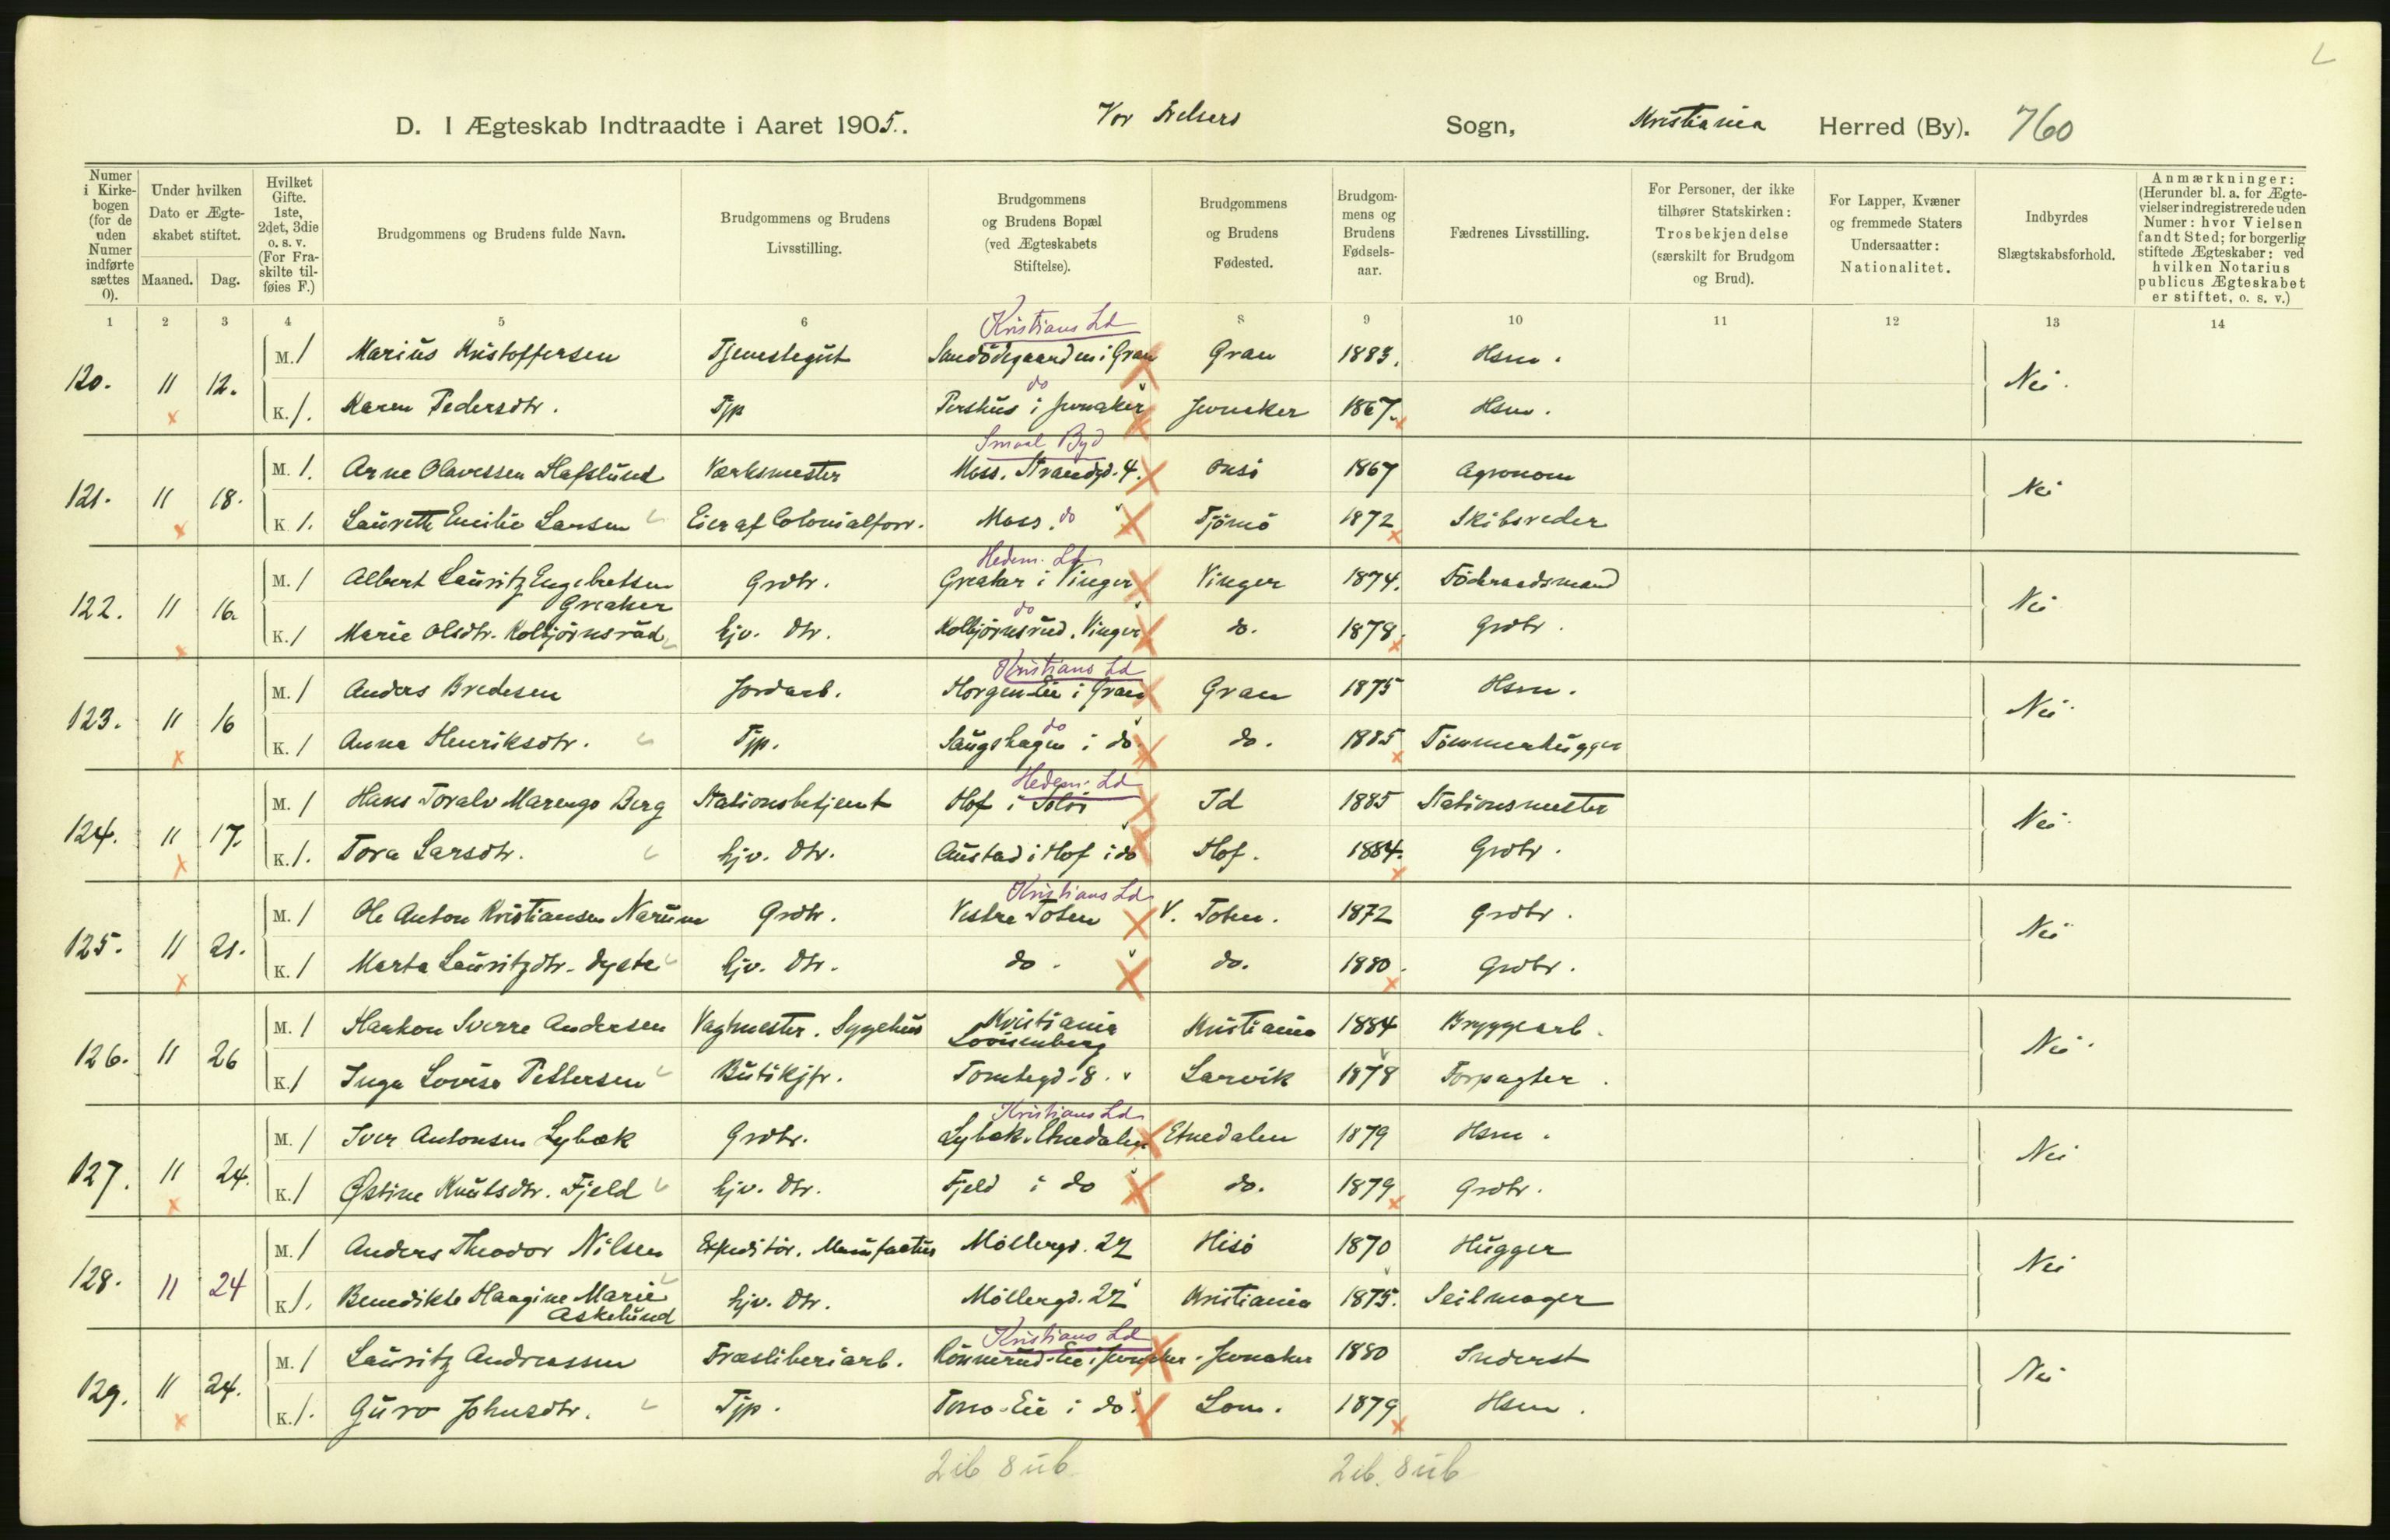 L
D. I Ægteskab Indtraadte i Aaret 1905. Vor Frelsers Sogn, Kristiania Herred (By). 760
Numer i Kirkebogen (for de uden Numer indførte sættes 0).
Under hvilken Dato er Ægteskabet stiftet.
Maaned. Dag.
Hvilket Gifte. 1ste, 2det, 3die o. s. v. (For Fraskilte tilføies F.)
Brudgommens og Brudens fulde Navn.
Brudgommens og Brudens Livsstilling.
Brudgommens og Brudens Bopæl (ved Ægteskabets Stiftelse).
Brudgommens og Brudens Fødested.
Brudgommens og Brudens Fødselsaar.
Fædrenes Livsstilling.
For Personer, der ikke tilhører Statskirken: Trosbekjendelse (særskilt for Brudgom og Brud).
For Lapper, Kvæner og fremmede Staters Undersaatter: Nationalitet.
Indbyrdes Slægtskabsforhold.
Anmærkninger: (Herunder bl. a. for Ægtevielser indregistrerede uden Numer: hvor Vielsen fandt Sted; for borgerlig stiftede Ægteskaber: ved hvilken Notarius publicus Ægteskabet er stiftet, o. s. v.)
1 2 3 4 5 6 8 9 10 11 12 13 14
Kristians Ld
120. 11 12. M. 1 Marius Kristoffersen Tjenestegut i Gran Gran 1883. Hsm. Nei.
do
K. 1. Karen Pedersdtr. Tjp Pershus i Jevnaker Jevnaker 1867. Hsm.
Smaal Byd
121. 11 18. M. 1. Arne Olavessen Hafslund Værksmester Moss. Strandgd. 4. Onsö 1867 Agronom Nei
K. 1. Laurette Emilie Larsen Eier af Colonialforr. Moss. do Tjömö 1872 Skibsreder
Hedem. Ld
122. 11 16. M. 1 Albert Lauritz Engebretsen Greaker Grdbr. Greaker i Vinger Vinger 1874. Föderaadsmand Nei
do
K. 1 Marie Olsdtr. Kolbjörnsrud hjv. Dtr. Kolbjörnsrud, Vinger do. 1878. Grdbr.
Kristians Ld
123. 11 16 M. 1 Anders Bredesen Jordarb. Horgen-Eie i Gran Gran 1875 Hsm. Nei
do
K. 1 Anna Henriksdtr. Tjp. Saugshagen i do. do. 1885 Tömmerhugger
Hedem. Ld
124. 11 17. M. 1 Hans Toralv Marengo Berg Stationsbetjent Hof i Solör Id 1885 Stationsmester Nei
K. 1. Tora Larsdtr. hjv. Dtr. Austad i Hof i do Hof. 1884. Grdbr.
Kristians Ld
125. 11 21. M. 1 Ole Anton Kristiansen Narum Grdbr. Vestre Toten V. Toten. 1872 Grdbr. Nei
K. 1 Marta Lauritzdtr. Dyste hjv. Dtr. do. do. 1880. Grdbr.
126. 11 26 M. 1 Haakon Sverre Andersen Vagtmester. Sygehus Kristiania Lovisenberg Kristiania 1884 Bryggearb. Nei.
K. 1 Inga Lovise Pettersen Butikjfr. Tomtegd. 8. Larvik 1878 Forpagter.
Kristians Ld
127. 11 24. M. 1 Iver Antonsen Lybæk Grdbr. Lybæk. Etnedalen Etnedalen 1879 Hsm. Nei
K. 1 Östine Knutsdtr. Fjeld hjv. Dtr. Fjeld i do do. 1879 Grdbr.
128. 11 24 M. 1 Anders Theodor Nilsen Expeditör. Manufactur Möllergd. 27 Hisö 1870 Hugger Nei
K. 1. Benedikte Haagine Marie Askelund hjv. Dtr. Möllergd. 27 Kristiania 1875. Seilmager
Kristians Ld
129. 11 24. M. 1 Lauritz Andreassen Træsliberiarb. Rönnerud-Eie i Jevnaker. Jevnaker 1880 Inderst Nei
K. 1. Guro Johnsdtr. Tjp. Eie i do. Lom. 1879 Hsm.
2 ib 8 üb 2 ib. 8 üb